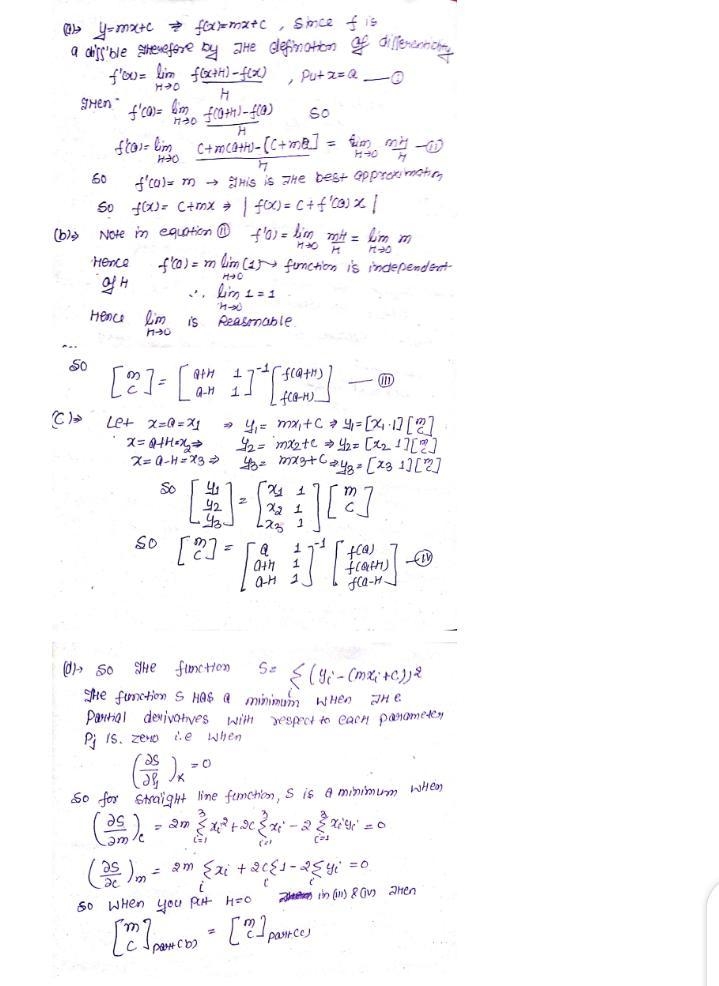 (a)⇒ y=mx+c ⇒ f(x)=mx+c , since f is
a diff'ble therefore by the defination of differenticity
f'(x)= lim H→0 f(x+H)-f(x) / H , Put x=a —(I)
then f'(a)= lim H→0 f(a+H)-f(a) / H so
f'(a)= lim H→0 c+m(a+H)-[c+ma] / H = lim H→0 mH/H —(II)
so f'(a)= m → this is the best approximation
so f(x)= c+mx ⇒ | f(x)= c+f'(a)x |
(b)⇒ Note in equation (II) f'(a)= lim H→0 mH/H = lim H→0 m
Hence f'(a)= m lim H→0 (1) → function is independent
of H ∴ lim H→0 1=1
Hence lim H→0 is Reasonable.
so [m c] = [a+H 1 a-H 1]^-1 [f(a+H) f(a-H)] —(III)
(c)⇒ Let x=a=x1 ⇒ y1= mx1+c ⇒ y1=[x1 1][m c]
x=a+H=x2⇒ y2= mx2+c ⇒ y2= [x2 1][m c]
x=a-H=x3⇒ y3= mx3+c ⇒ y3= [x3 1][m c]
so [y1 y2 y3] = [x1 1 x2 1 x3 1] [m c]
so [m c] = [a 1 a+H 1 a-H 1]^-1 [f(a) f(a+H) f(a-H] —(IV)
(d)→ so the function S= Σ i (yi-(mxi+c))2
The function S has a minimum when the
Partial derivatives with respect to each parameter
Pj is. zero i.e when
(∂S/∂Pj)x =0
so for straight line function, S is a minimum when
(∂S/∂m)c = 2m Σ i=1 3 xi2+2c Σ i=1 3 xi -2 Σ i=1 3 xiyi =0
(∂S/∂c)m = 2m Σ i xi +2c Σ i 1-2 Σ i yi =0
so when you put H=0 in (III) & (IV) then
[m c] part(b) = [m c] part(c)